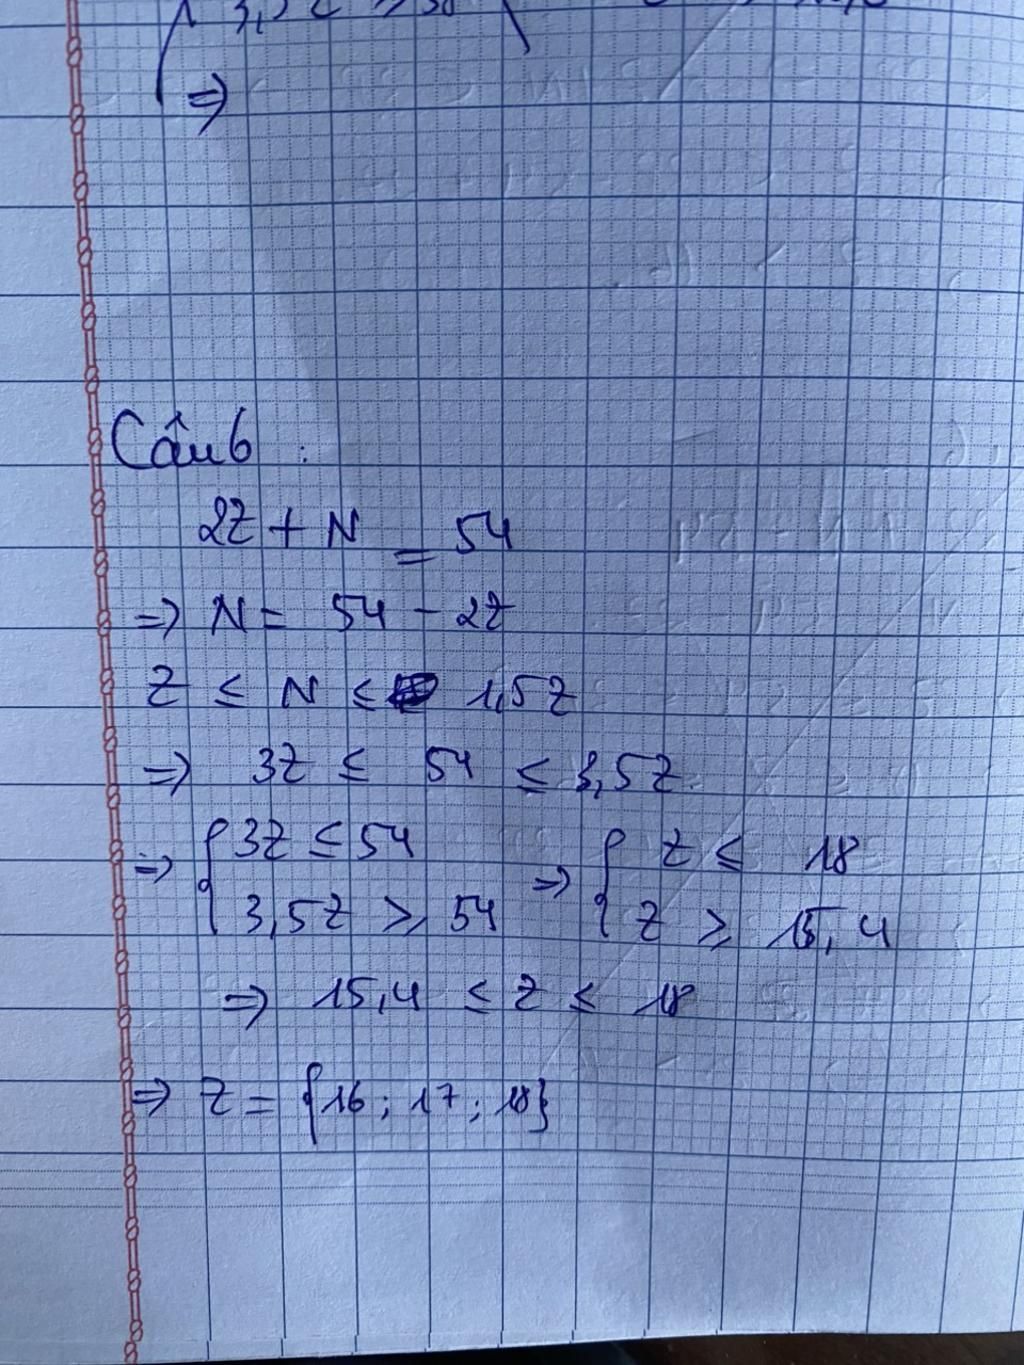 ⇒
Câu 6 :
2Z + N = 54
⇒ N = 54 - 2Z
Z ≤ N ≤ 1,5Z
⇒ 3Z ≤ 54 ≤ 3,5Z
⇒ { 3Z ≤ 54 ⇒ { Z ≤ 18
3,5Z ≥ 54 Z ≥ 15,4
⇒ 15,4 ≤ Z ≤ 18
⇒ Z = {16 ; 17 ; 18}